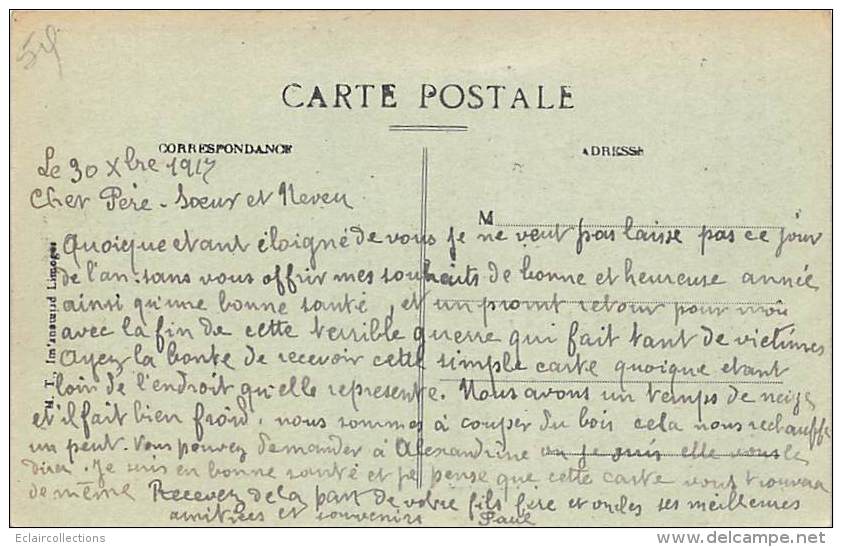 CARTE POSTALE
CORRESPONDANCE
ADRESSE
Le 30 Xbre 1917
Cher Père - Sœur et Neveu
M
Quoique etant éloigné de vous je ne veut pas laisse pas ce jour
de l'an: sans vous offrir mes souhaits de bonne et heureuse année
ainsi qu'une bonne santé, et un promt retour pour moi
avec la fin de cette terrible guerre qui fait tant de victimes
Ayez la bonte de recevoir cette simple carte quoique etant
loin de l'endroit qu'elle represente. Nous avons un temps de neige
et il fait bien froid, nous sommes à couper du bois cela nous rechauffe
un peut. Vous pouvez demander à Alexandrine ou je suis elle vous le
dira. Je suis en bonne santé et je pense que cette carte vous trouvera
de même Recevez de la part de votre fils frère et oncle ses meilleures
amitiées et souvenirs Paul
M. T., Limoges
Eclaircollections
delcampe.net